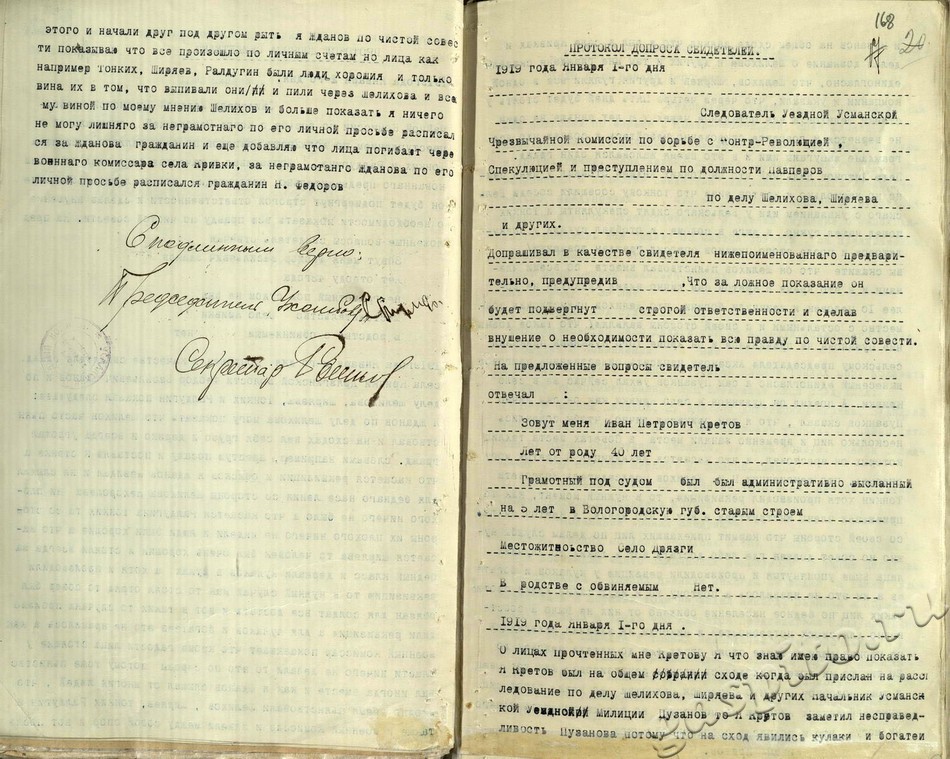 этого и начали друг под другом рыть я Жданов по чистой совес
ти показываю что все произошло по личным счетам но лица как
например Тонких, Ширяев, Ралдугин были люди хорошия и только
вина их в том, что выпивали они и пили через Шелихова и все
му виной по моему мнению Шелихов и больше показать я ничего
не могу лишняго за неграмотнаго по его личной просьбе расписал
ся за Жданова гражданин и еще добавляю что лица погибают чере
военнаго комиссара села Кривки, за неграмотанго Жданова по его
личной просьбе расписался гражданин Н. Федоров
С подлинным верно:
Председатель
Секретарь
168
20
ПРОТОКОЛ ДОПРОСА СВИДЕТЕЛЕЙ.
1919 года Января 1-го дня
Следователь Уездной Усманской
Чрезвычайной Комиссии по борьбе с Контр-Революцией ,
Спекуляцией и преступлением по должности Лавперов
по делу Шелихова, Ширяева
и других.
Допрашивал в качестве свидетеля нижепоименованнаго предвари-
тельно, предупредив ,Что за ложное показание он
будет подвергнут строгой ответственности и сделав
внушение о необходимости показать всю правду по чистой совести.
На предложенные вопросы свидетель
отвечал :
Зовут меня Иван Петрович Кретов
Лет от роду 40 лет
Грамотный под судом был был административно высланный
на 5 лет в Вологородскую губ. старым строем
Местожительство Село Дрязги
В родстве с обвиняемым нет.
1919 года Января 1-го дня .
О лицах прочтенных мне Кретову я что знаю имею право показать
Я Кретов был на общем собрании сходе когда был прислан на расс
ледование по делу Шелихова, Ширяева и других Начальник Усманс
кой Уездной Милиции Пузанов то я Кретов заметил несправед-
ливость Пузанова потому что на сход явились кулаки и богатеи